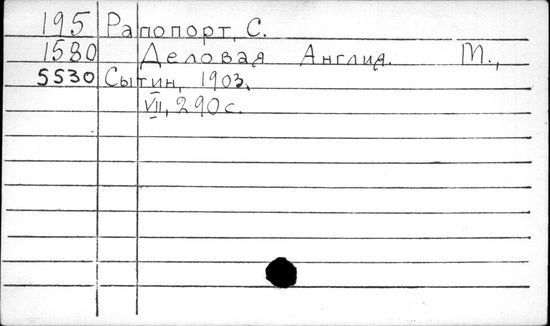 195 Рапопорт, С.
1580 Деловая Англия. М.,
5530 Сытин, 1903.
VII, 290 с.